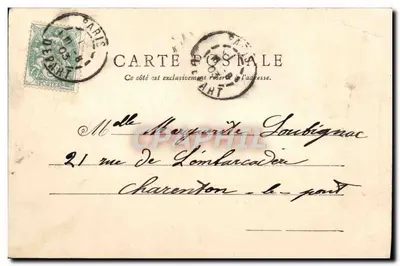 PARIS
DEPART
03
CARTE POSTALE
PARIS
DEPART
03
Ce côté est exclusivement réservé à l'adresse.
Mlle Marguerite Loubignac
21 rue de L'embarcadère
Charenton-le-pont